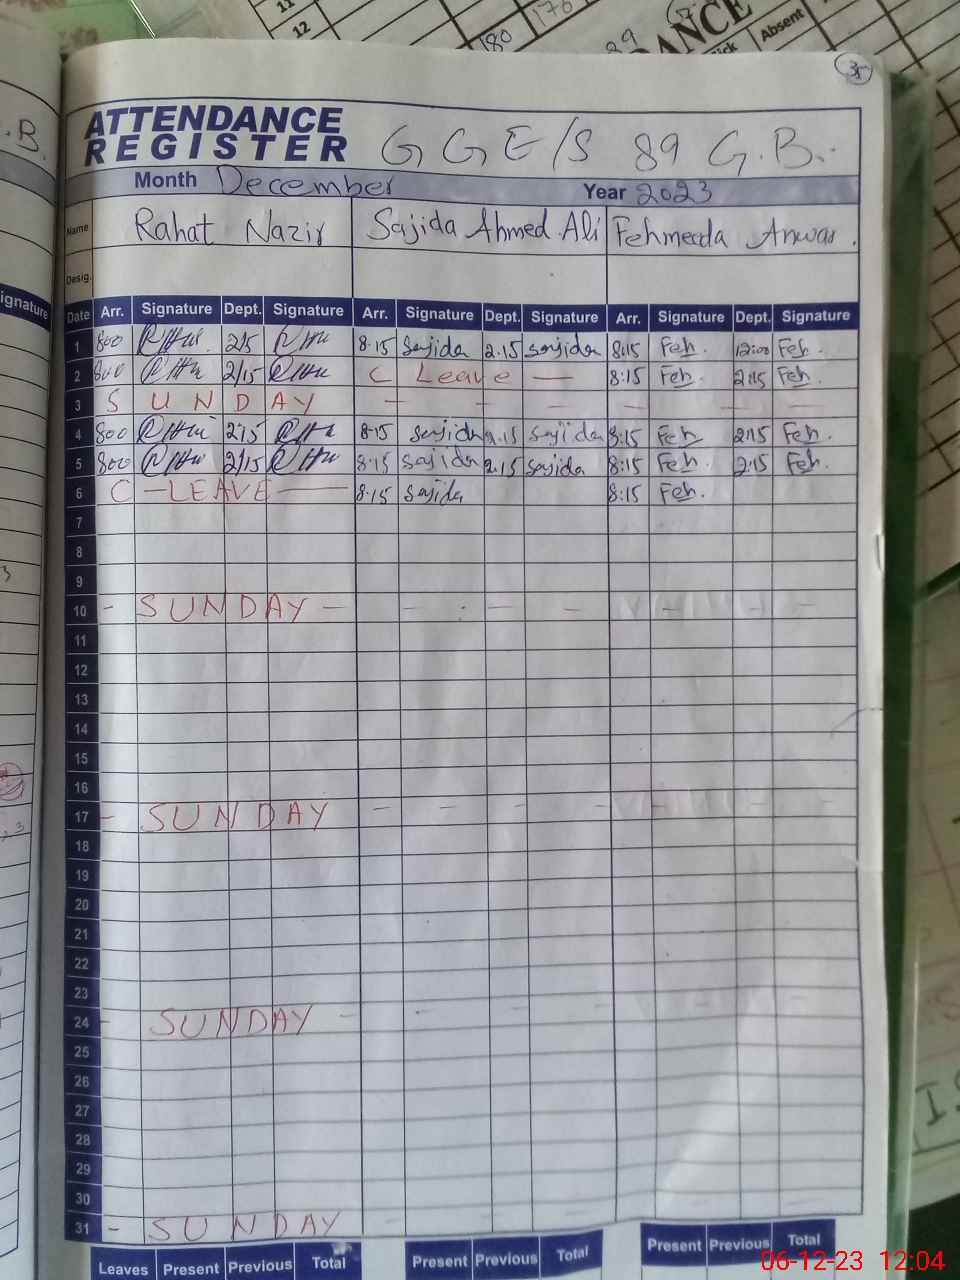 11
12
180
170
89
ANCE
Absent
35
.B.
ATTENDANCE
REGISTER
G G E/S 89 G.B.
Month December Year 2023
Name Rahat Nazir Sajida Ahmed Ali Fehmeeda Anwar.
Desig.
ignature
Date Arr. Signature Dept. Signature Arr. Signature Dept. Signature Arr. Signature Dept. Signature
1 800 2/15 8.15 Sajida 2.15 Sajida 8:15 Feh. 12:00 Feh.
2 800 2/15 C Leave — 8:15 Feh. 2:15 Feh.
3 S U N D A Y - - - - - -
4 800 2:15 8.15 Sajida 2.15 Sajida 8:15 Feh 2:15 Feh.
5 800 2/15 8:15 Sajida 2.15 Sajida 8:15 Feh. 2:15 Feh.
6 C - LEAVE — 8:15 Sajida 8:15 Feh.
7
8
9
10 - SUNDAY - - - -
11
12
13
14
15
16
17 - SUNDAY - - - -
18
19
20
21
22
23
24 - SUNDAY -
25
26
27
28
29
30
31 - SUNDAY
Leaves Present Previous Total Present Previous Total Present Previous Total
06-12-23 12:04